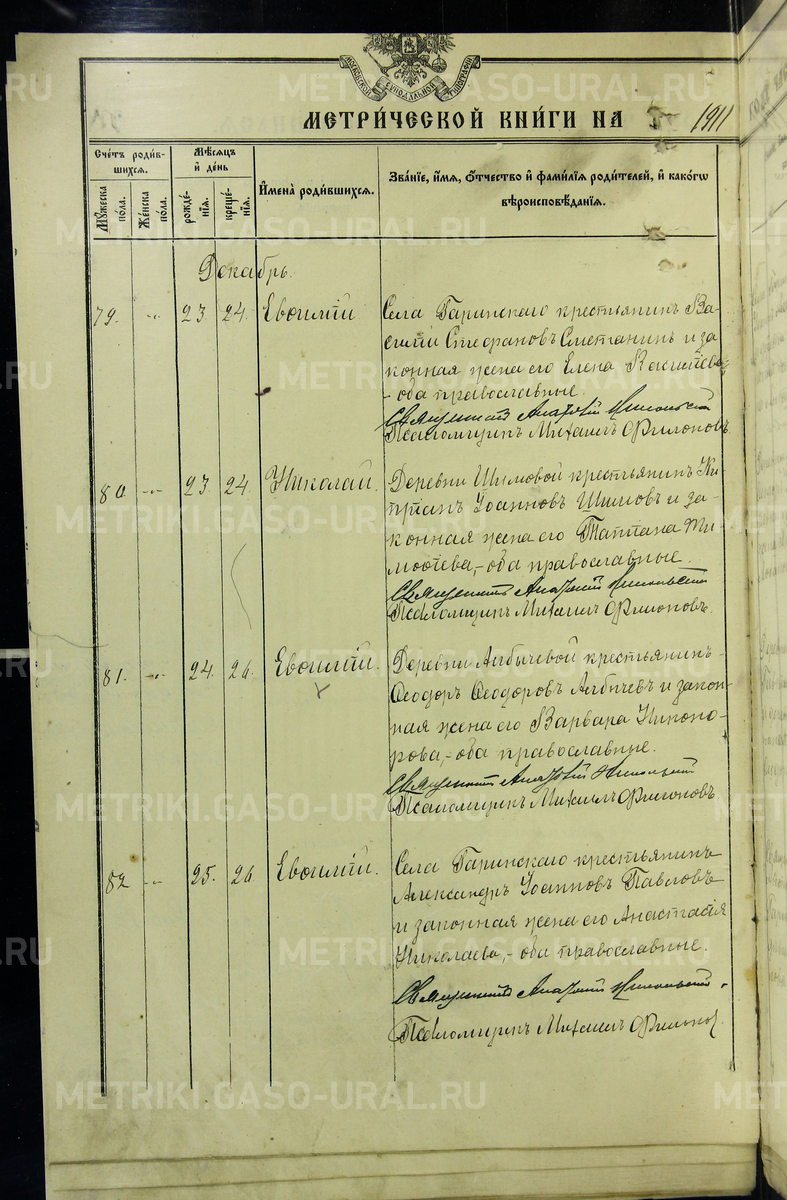 МОСКОВСКОЙ СѴНОДАЛЬНОЙ ТИПОГРАФІИ
МЕТРИ́ЧЕСКОЙ КНИ́ГИ НА 1911
Сче́тъ роди́вшихся.
Мѣ́сяцъ и҆ де́нь
И҆мена̀ роди́вшихся.
Зва́нїе, и҆́мѧ, ѻ҆́тчество и҆ фами́лїѧ роди́телей, и҆ како́гѡ вѣроисповѣ́данїѧ.
Мꙋ́жеска по́ла.
Же́нска по́ла.
рожде́нїѧ.
креще́нїѧ.
Декабрь.
79. -„- 23 24. Евѳимій
Села Гаринскаго крестьянинъ Ва-
силій Стефановъ Сметанинъ и за
конная жена его Елена Васильева
- оба православные.
Священникъ Анатолій Никольскій
Псаломщикъ Михаилъ Филоновъ.
80 -„- 23 24. Николай.
Деревни Шимовой крестьянинъ Ки-
пріанъ Іоанновъ Шимовъ и за-
конная жена его Татіана Ти-
моѳеева,- оба православные.
Священникъ Анатолій Никольскій
Псаломщикъ Михаилъ Филоновъ.
81. -„- 24. 26. Евѳимій.
Деревни Албычевой крестьянинъ
Ѳеодоръ Ѳеодоровъ Албычевъ и закон-
ная жена его Варвара Никоно-
рова,- оба православные.
Священникъ Анатолій Никольскій
Псаломщикъ Михаилъ Филоновъ.
82 -„- 25. 26 Евѳимій.
Села Гаринскаго крестьянинъ
Александръ Іоанновъ Павловъ
и законная жена его Анастасія
Николаева,- оба православные.
Священникъ Анатолій Никольскій.
Псаломщикъ Михаилъ Филонов.
METRIKI.GASO-URAL.RU